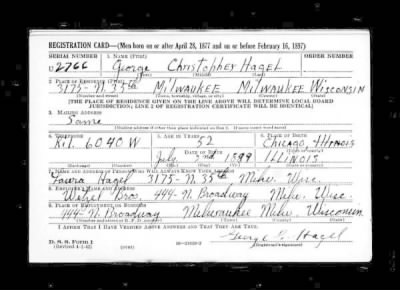 REGISTRATION CARD—(Men born on or after April 28, 1877 and on or before February 16, 1897)
SERIAL NUMBER 1. NAME (Print) ORDER NUMBER
U 2766 George Christopher Hagel
(First) (Middle) (Last)
2. PLACE OF RESIDENCE (Print)
3175-N. 35th Milwaukee Milwaukee Wisconsin
(Number and street) (Town, township, village, or city) (County) (State)
[THE PLACE OF RESIDENCE GIVEN ON THE LINE ABOVE WILL DETERMINE LOCAL BOARD
JURISDICTION; LINE 2 OF REGISTRATION CERTIFICATE WILL BE IDENTICAL]
3. MAILING ADDRESS
Same
(Mailing address if other than place indicated on line 2. If same insert word same)
4. TELEPHONE 5. AGE IN YEARS 6. PLACE OF BIRTH
Kil. 6040 W 52 Chicago, Illinois
DATE OF BIRTH (Town or county)
July 2nd 1889 ILLINOIS
(Exchange) (Number) (Mo.) (Day) (Yr.) (State or country)
7. NAME AND ADDRESS OF PERSON WHO WILL ALWAYS KNOW YOUR ADDRESS
Laura Hagel 3175-N 35th Milw. Wisc.
8. EMPLOYER'S NAME AND ADDRESS
Bro. 444-N. Broadway Milw. Wisc.
9. PLACE OF EMPLOYMENT OR BUSINESS
444-N. Broadway Milwaukee Milw. Wisconsin
(Number and street or R. F. D. number) (Town) (County) (State)
I AFFIRM THAT I HAVE VERIFIED ABOVE ANSWERS AND THAT THEY ARE TRUE.
D. S. S. Form 1
(Revised 4-1-42) (over) George C. Hagel
(Registrant's signature)